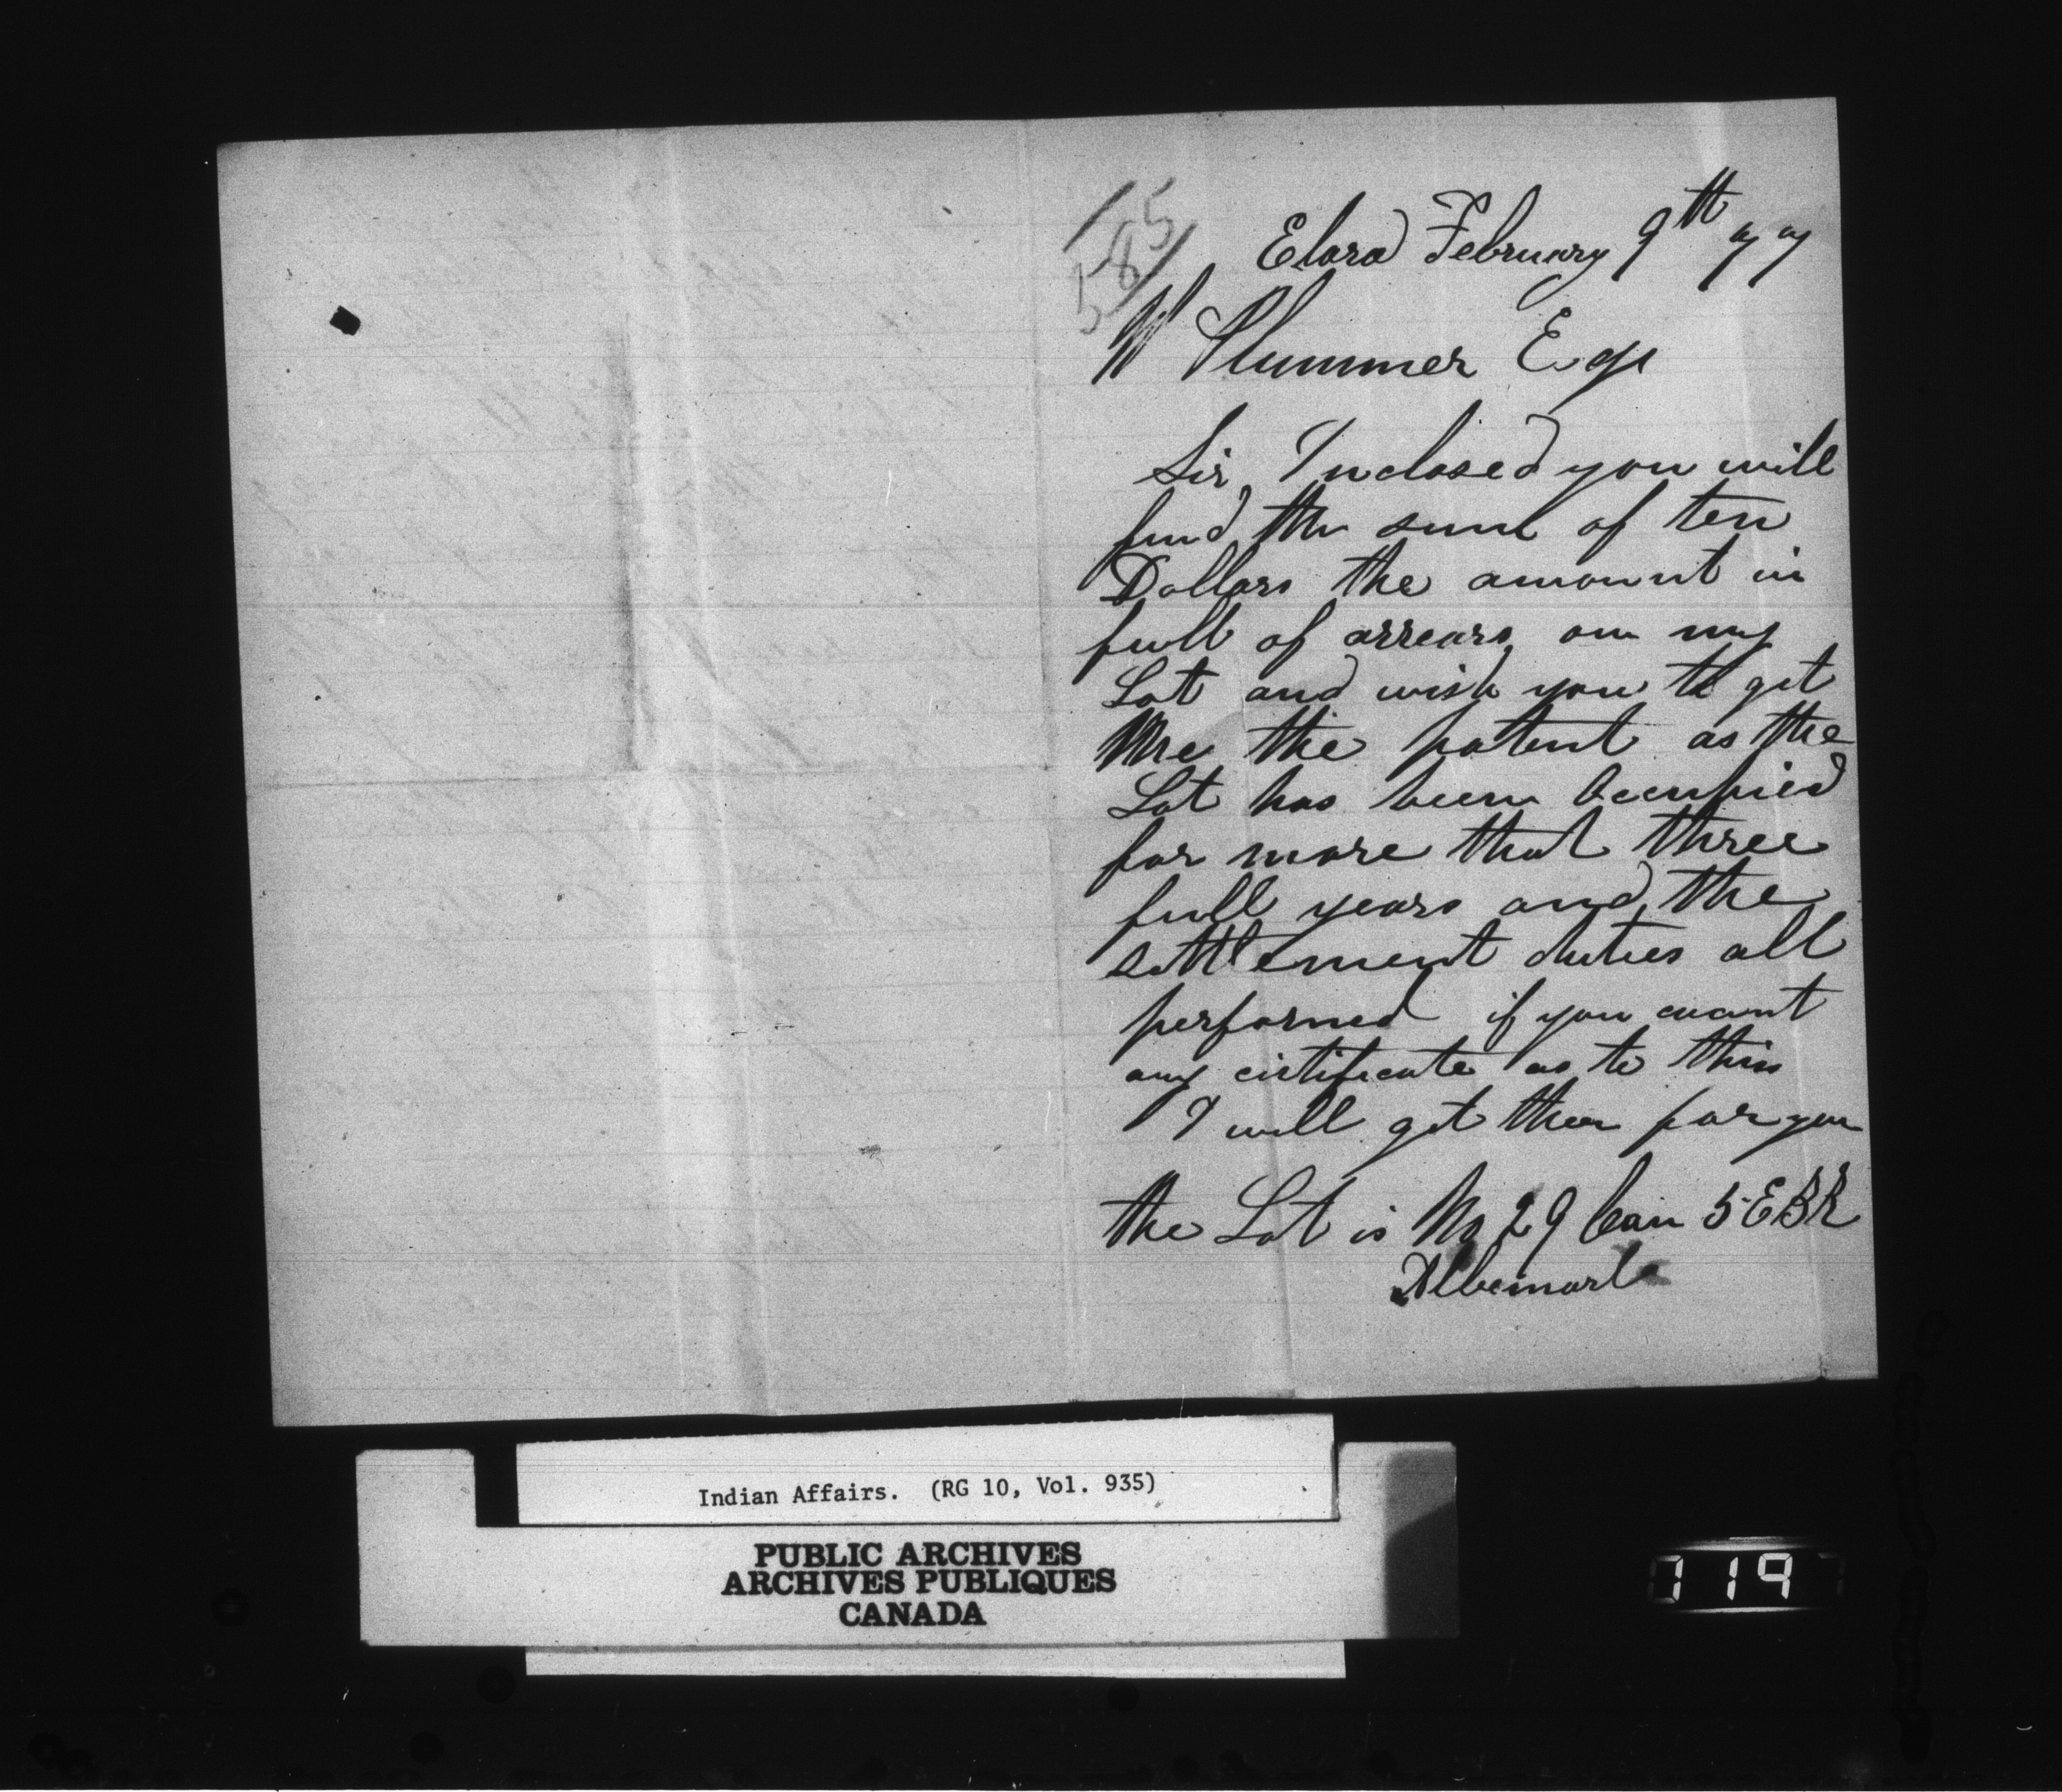 585
Elora February 9th 77
W Plummer Esqr
Sir, Inclosed you will
find the sum of ten
Dollars the amount in
full of arrears on my
Lot and wish you to get
Me the patent as the
Lot has been Occupied
for more that three
full years and the
settlement duties all
performed if you want
any certificate as to this
I will get them for you
the Lot is No 29 Con 5 EBR
Albemarle
Indian Affairs. (RG 10, Vol. 935)
PUBLIC ARCHIVES
ARCHIVES PUBLIQUES
CANADA
119